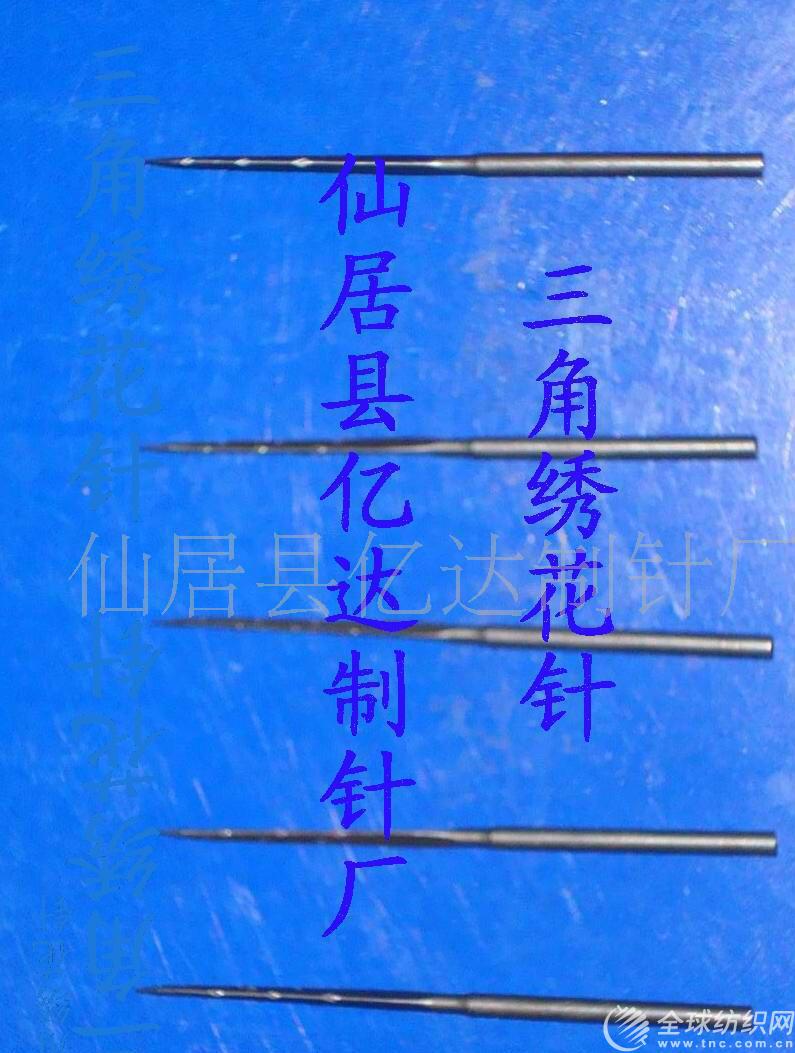 三角绣花针
仙居县亿达制针厂
三角绣花针
仙居县亿达制针厂
三角绣花针
全球纺织网
www.tnc.com.cn